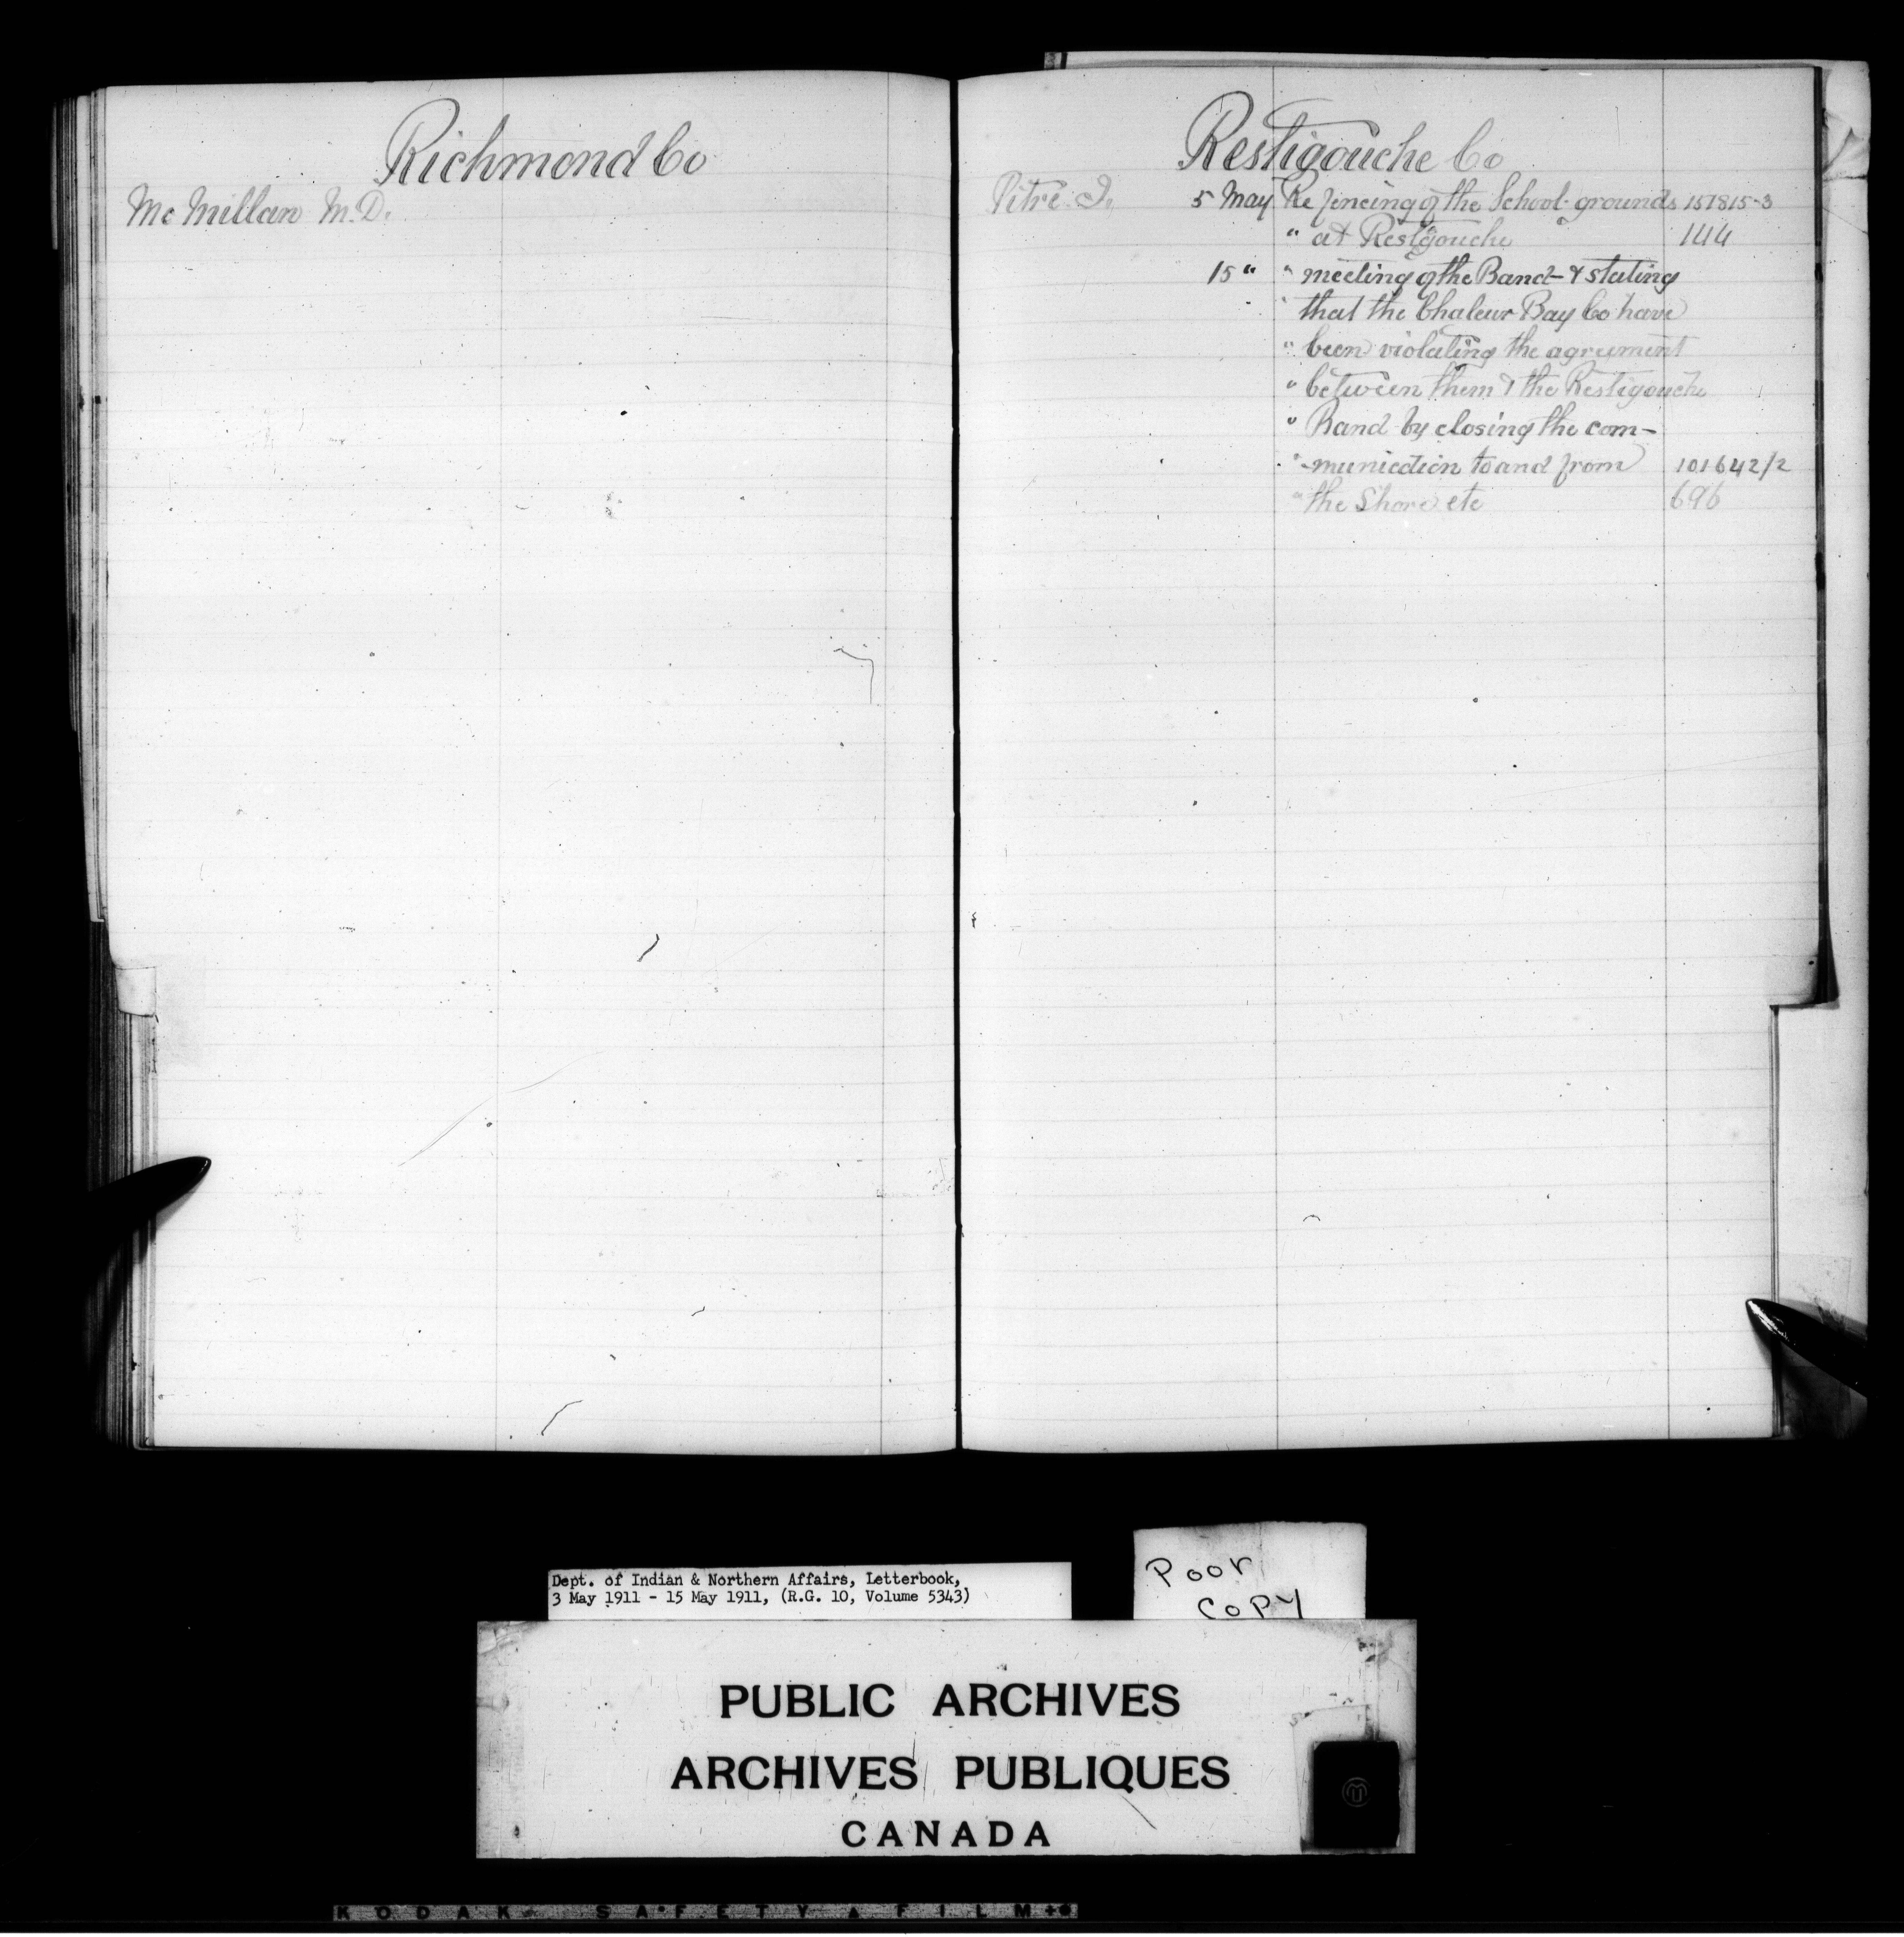 Richmond Co
Mc Millan M.D.
Restigouche Co
Pitre J. 5 May Re fencing of the School-grounds 157815-3
" at Restigouche 144
15 " " meeting of the Band - & stating
" that the Chaleur Bay Co have
" been violating the agreement
" between them & the Restigouche
" Band by closing the com-
" -munication to and from 101642/2
" the Shore etc 696
Dept. of Indian & Northern Affairs, Letterbook,
3 May 1911 - 15 May 1911, (R.G. 10, Volume 5343)
Poor
Copy
PUBLIC ARCHIVES
ARCHIVES PUBLIQUES
CANADA
KODAK SAFETY FILM